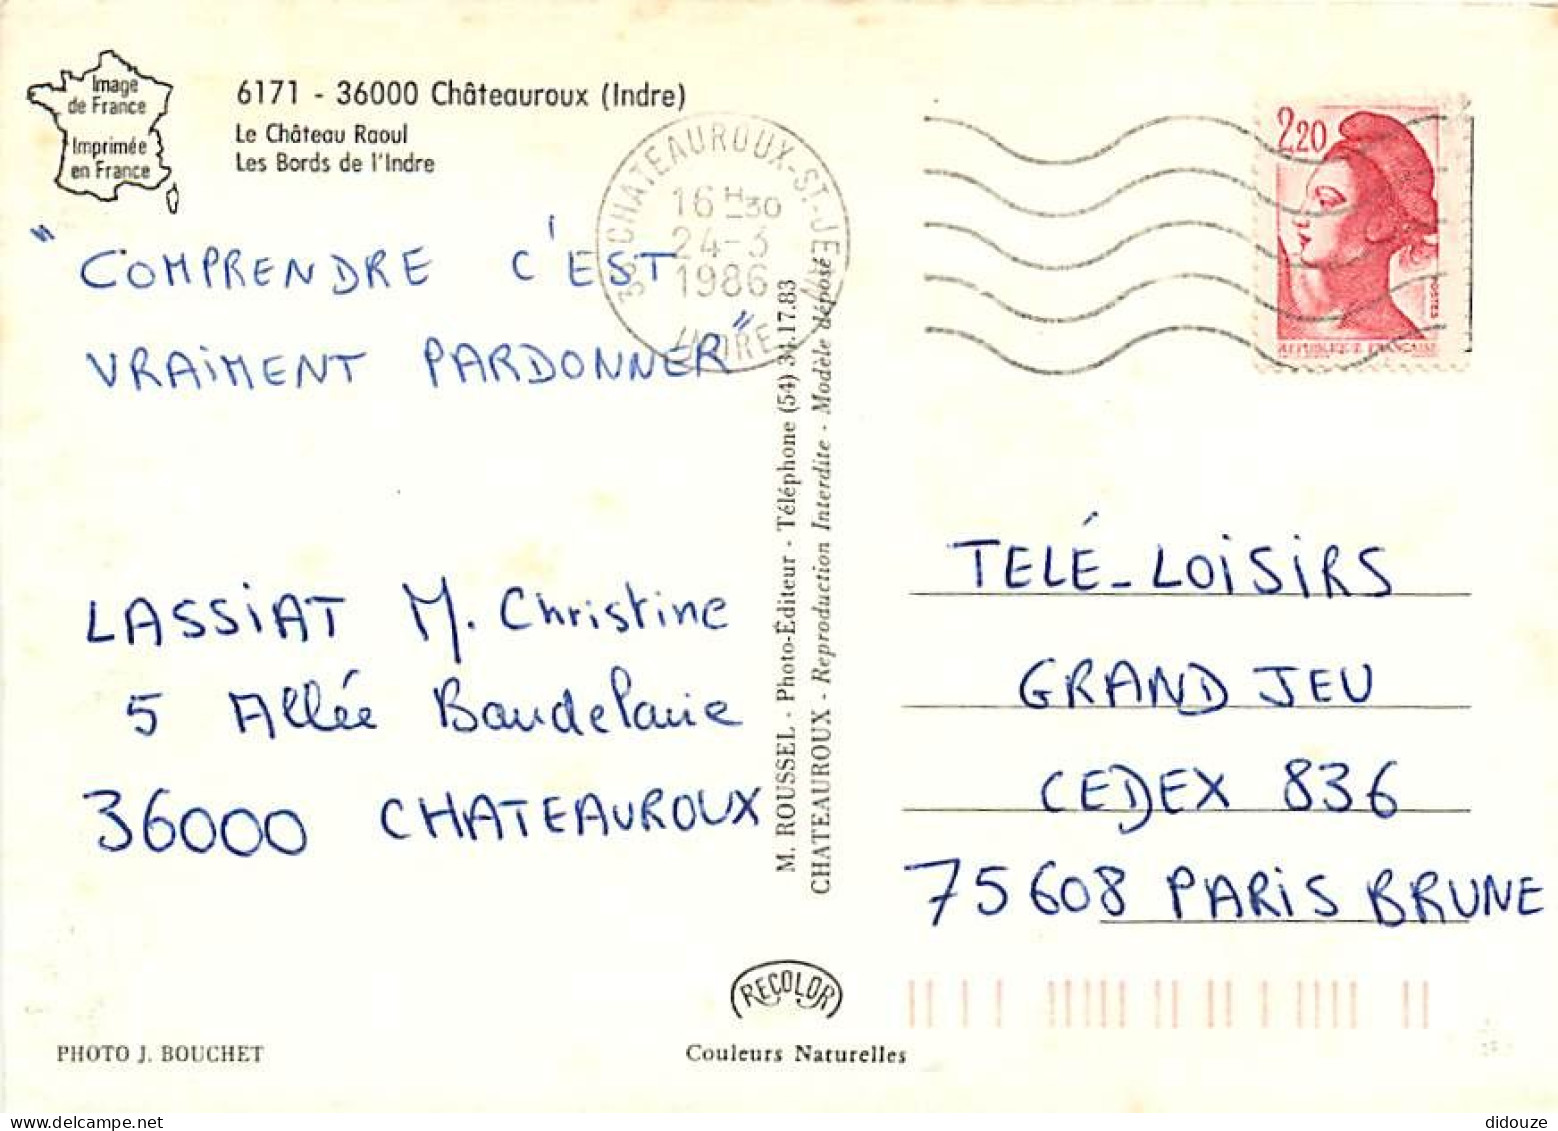 Image
de France
Imprimée
en France
6171 - 36000 Châteauroux (Indre)
Le Château Raoul
Les Bords de l'Indre
36 CHATEAUROUX-ST-JEAN
16 H 30
24-3
1986
INDRE
2,20
POSTES
REPUBLIQUE FRANÇAISE
"COMPRENDRE C'EST
VRAIMENT PARDONNER"
LASSIAT M. Christine
5 Allée Baudelaire
36000 CHATEAUROUX
M. ROUSSEL - Photo-Éditeur - Téléphone (54) 34.17.83
CHATEAUROUX - Reproduction Interdite - Modèle déposé
TELÉ-LOISIRS
GRAND JEU
CEDEX 836
75608 PARIS BRUNE
RECOLOR
PHOTO J. BOUCHET
Couleurs Naturelles
didouze